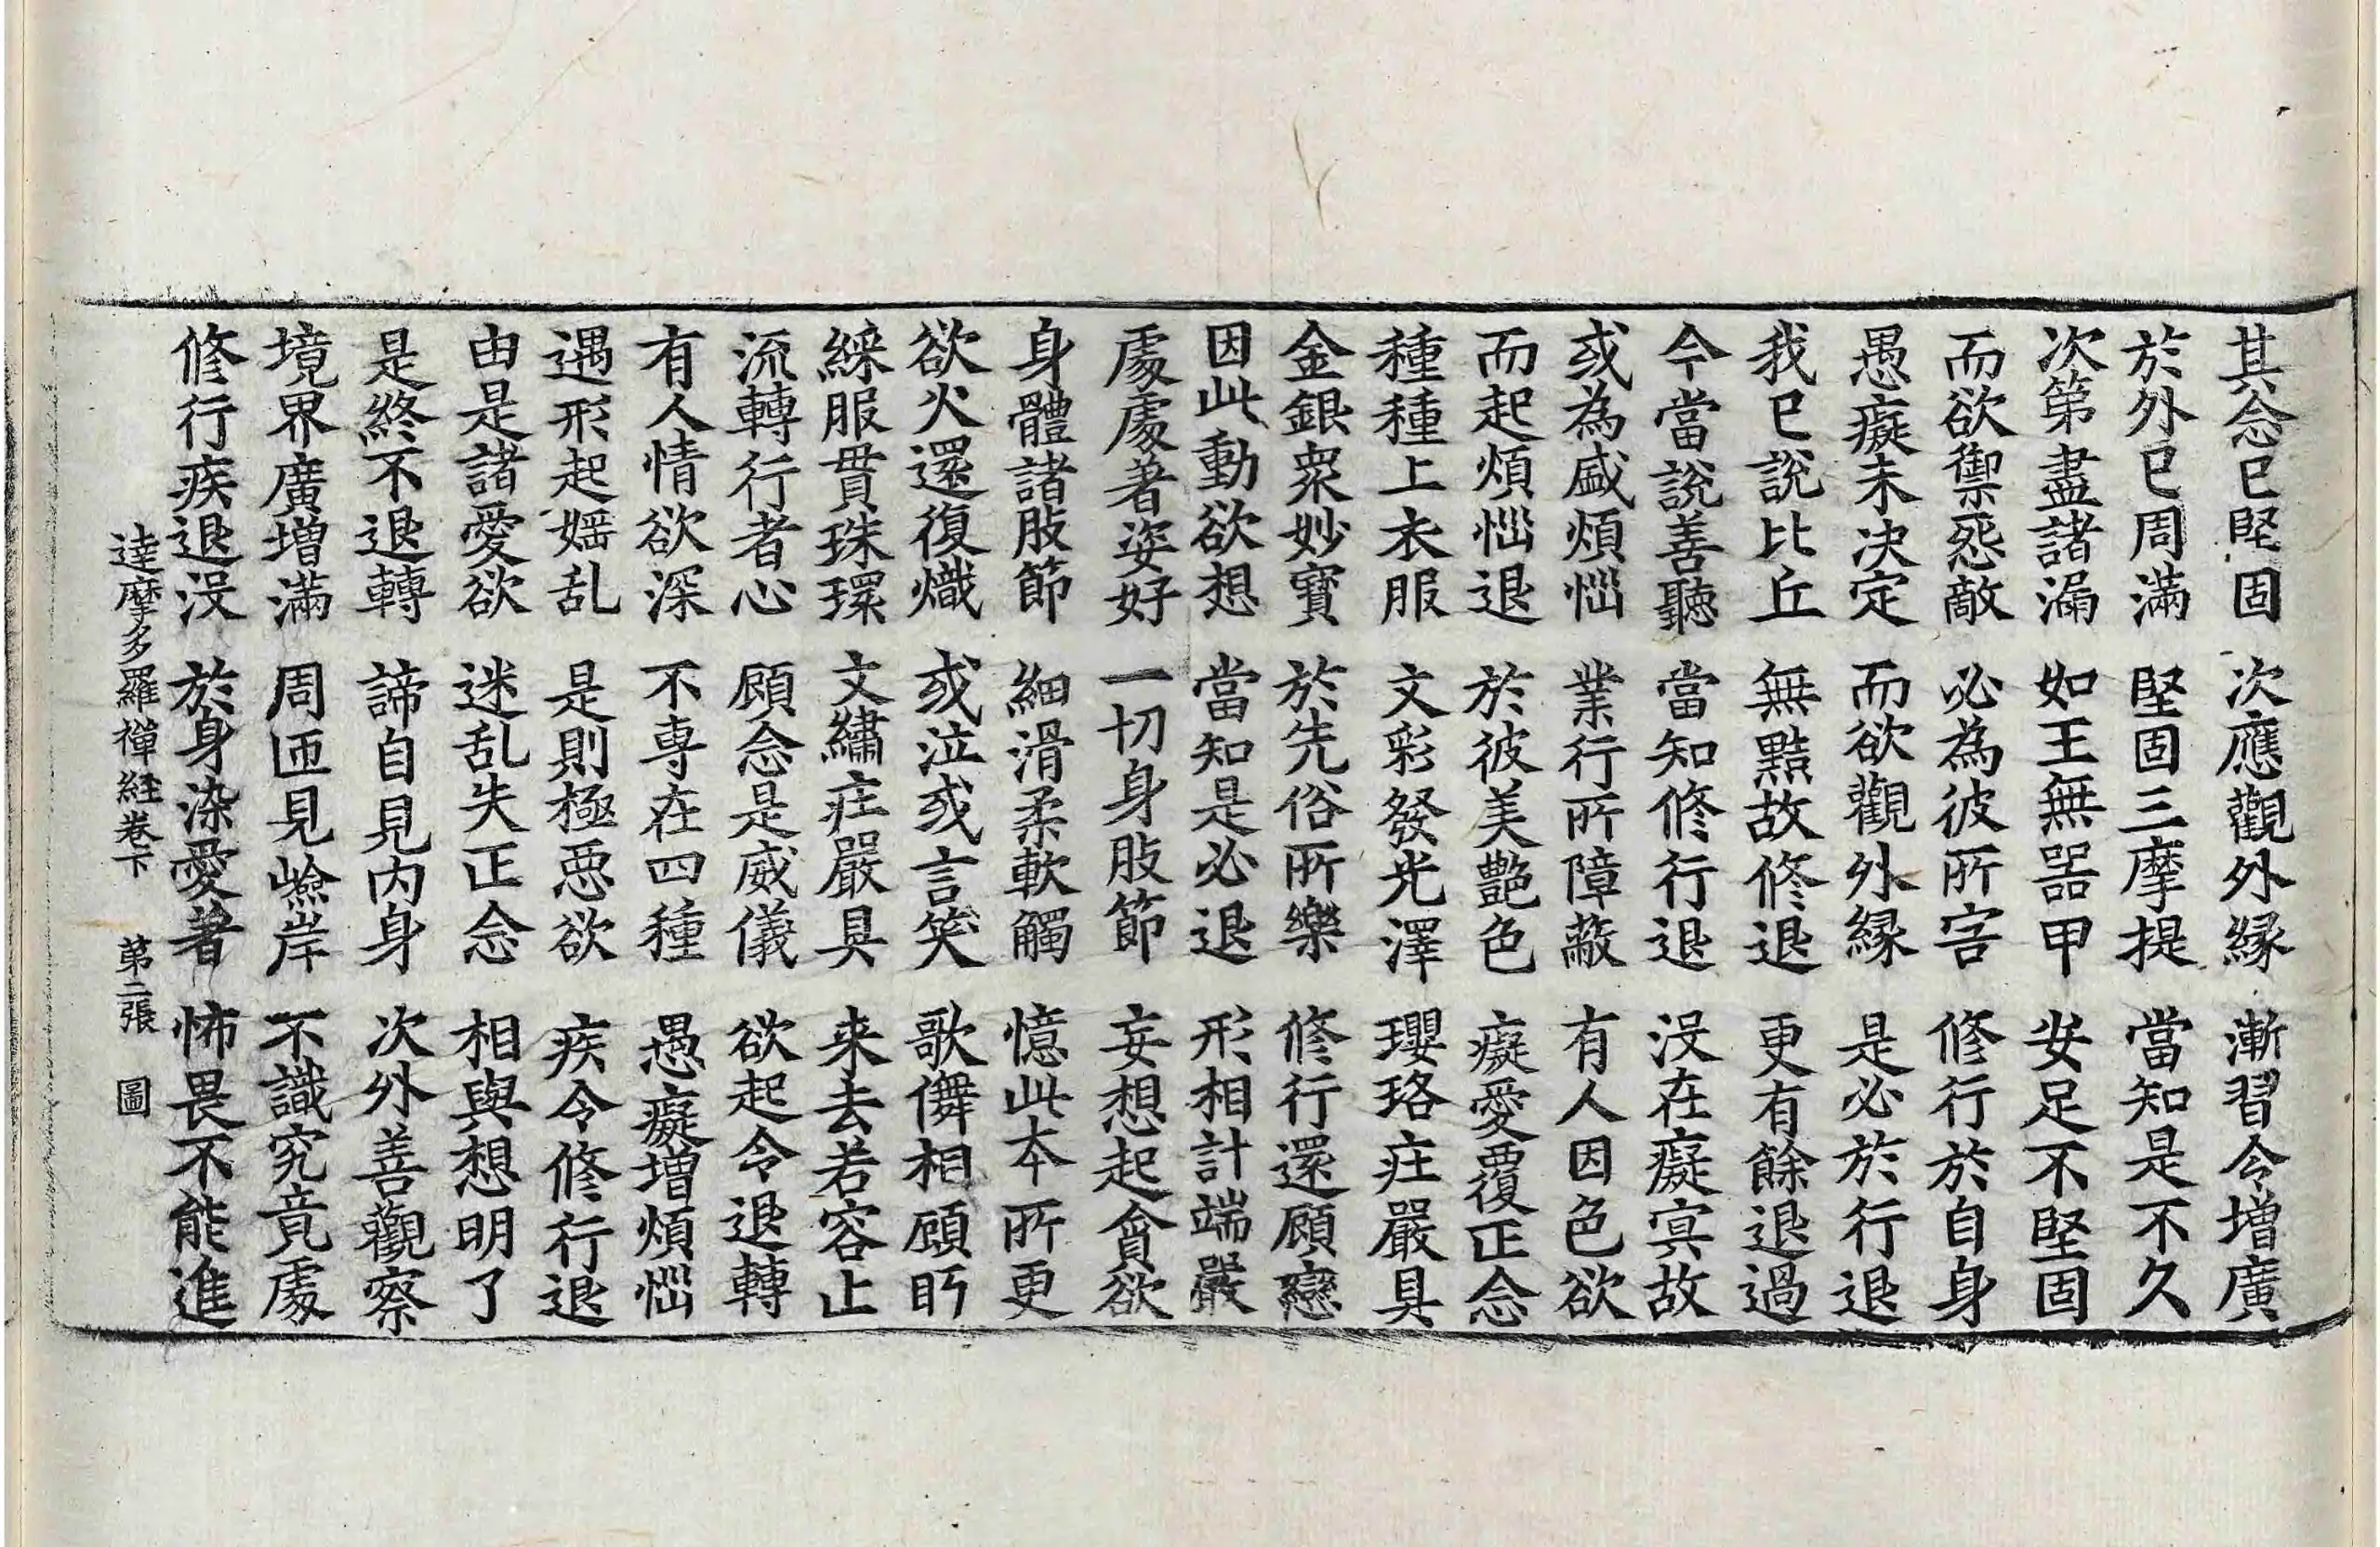 其念已堅固　次應觀外縁　漸習令增廣
於外已周滿　堅固三摩提　當知是不久
次第盡諸漏　如王無器甲　安足不堅固
而欲禦怨敵　必為彼所害　修行於自身
愚癡未决定　而欲觀外縁　是必於行退
我已說比丘　無黠故修退　更有餘退過
今當說善聽　當知修行退　没在癡冥故
或為盛煩惱　業行所障蔽　有人因色欲
而起煩惱退　於彼美艷色　癡愛覆正念
種種上衣服　文彩發光澤　瓔珞庄嚴具
金銀衆妙寶　於先俗所樂　修行還顧戀
因此動欲想　當知是必退　形相計端嚴
處處著姿好　一切身肢節　妄想起貪欲
身體諸肢節　細滑柔軟觸　憶此本所更
欲火還復熾　或泣或言笑　歌儛相顧眄
綵服貫珠環　文繡庄嚴具　来去若容止
流轉行者心　顧念是威儀　欲起令退轉
有人情欲深　不専在四種　愚癡增煩惱
遇形起婬乱　是則極惡欲　疾令修行退
由是諸愛欲　迷乱失正念　相與想明了
是終不退轉　諦自見内身　次外善觀察
境界廣增滿　周匝見嶮岸　不識究竟處
修行疾退没　於身染愛著　怖畏不能進
達摩多羅禪経卷下　第二張　圖